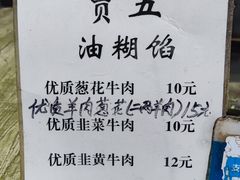 贡五
油糊馅
优质葱花牛肉 10元
优质羊肉葱花(一两羊肉)15元
优质韭菜牛肉 10元
优质韭黄牛肉 12元